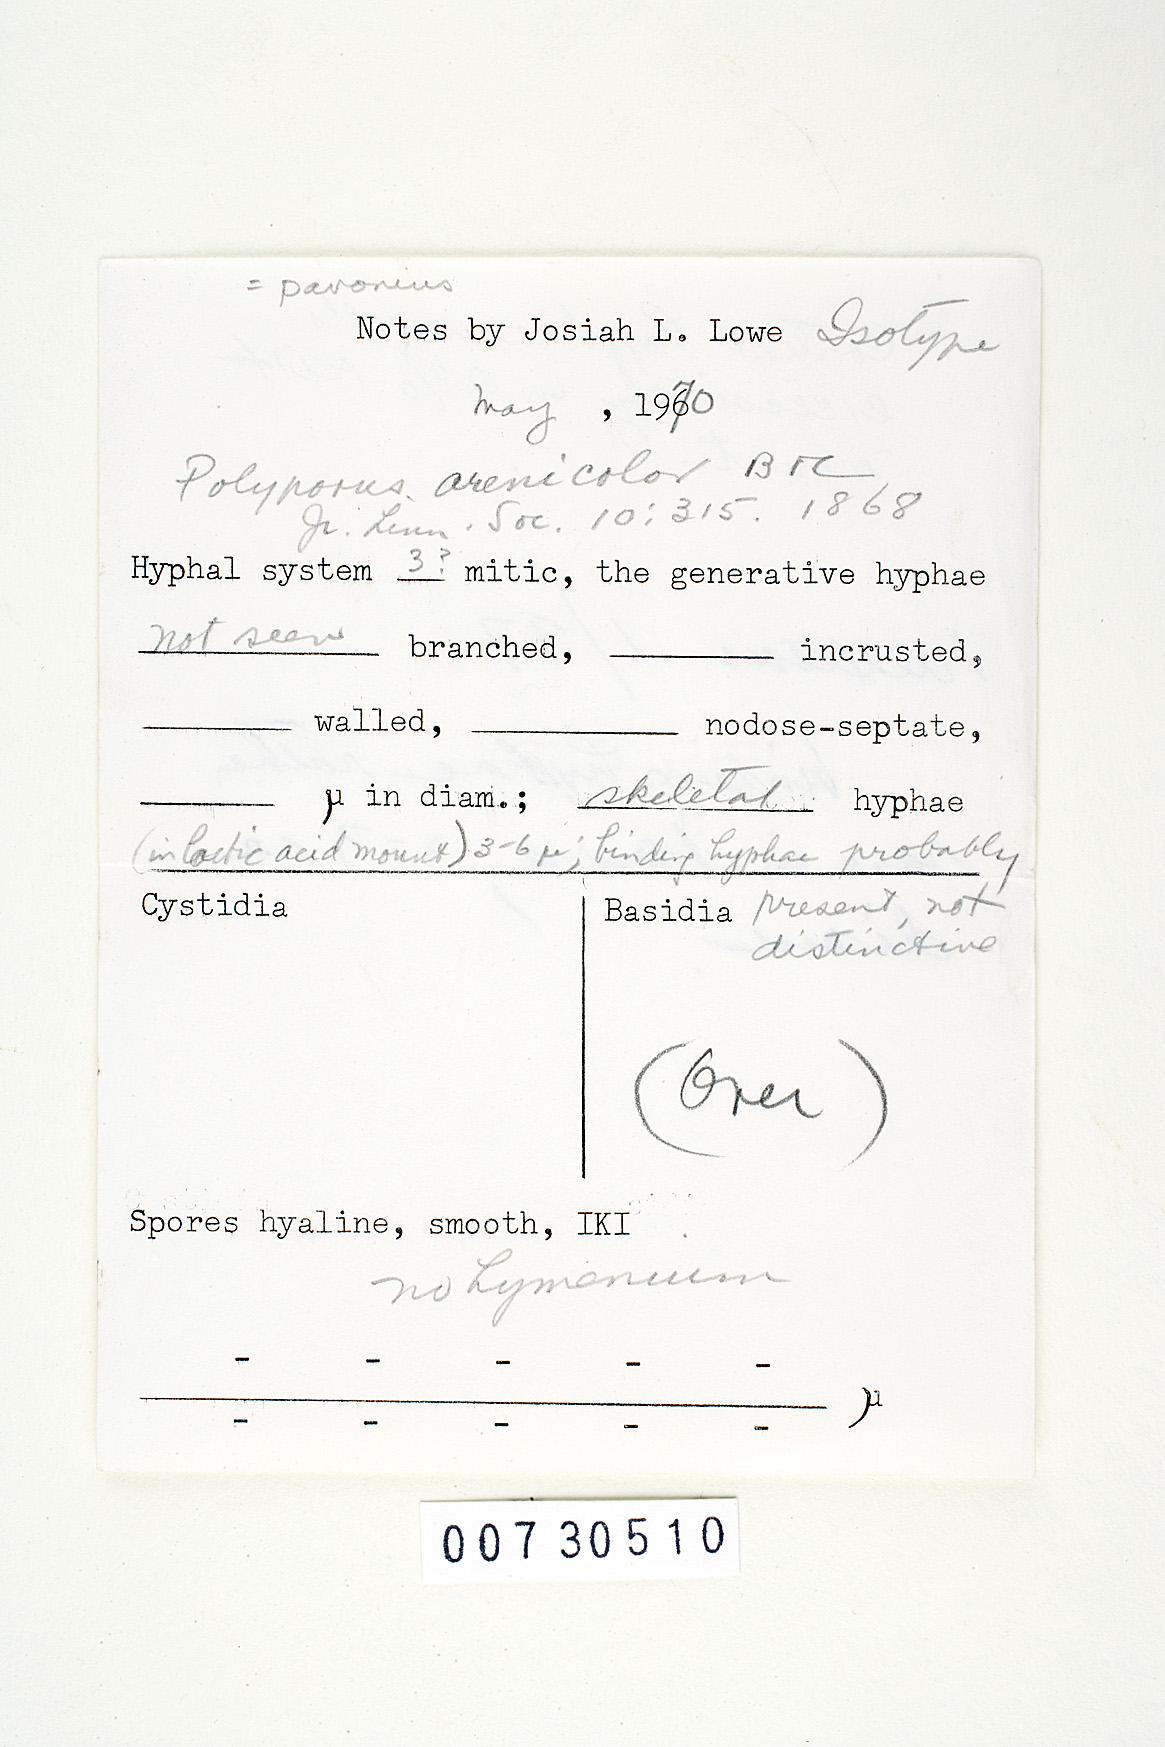 = pavoneus
Notes by Josiah L. Lowe Isotype
May , 1970
Polyporus arenicolor B & C
Jr. Linn. Soc. 10: 315. 1868
Hyphal system 3? mitic, the generative hyphae
not seen branched, ________ incrusted,
________ walled, ________ nodose-septate,
________ µ in diam.; skeletal hyphae
(in lactic acid mount) 3-6 µ; binding hyphae probably
Cystidia Basidia present, not
distinctive
(Over)
Spores hyaline, smooth, IKI
no hymenium
- - - - -
________ µ
- - - - -
00730510